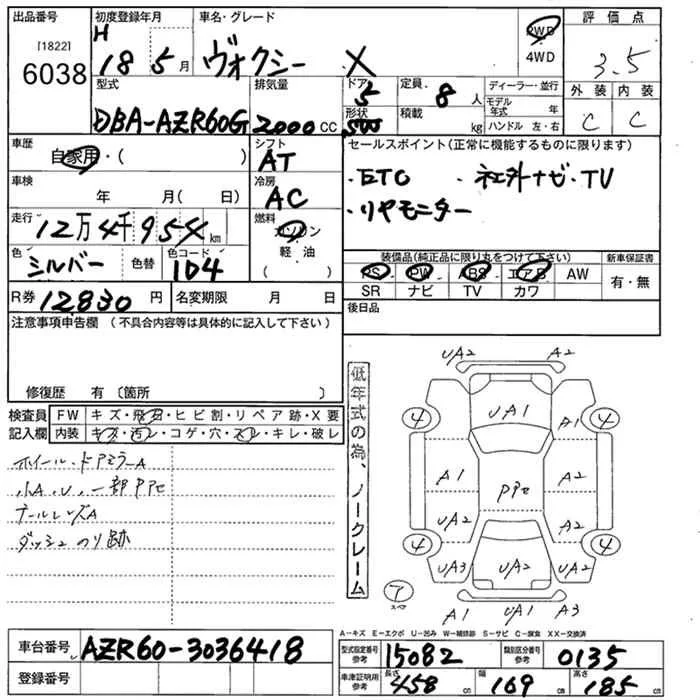 出品番号 初度登録年月 車名・グレード 評価点
[1822] 6038
H 18 5月 ヴォクシー X
2WD
4WD
3.5
型式 排気量 ドア 定員 8人 ディーラー・並行 外装 内装
DBA-AZR60G 2000cc 5 形状 積載 kg モデル年式 年 C C
ハンドル 左・右
車歴 自家用・( ) シフト AT
セールスポイント(正常に機能するものに限ります)
・ETC ・社外ナビ・TV
・リヤモニター
車検 年 月(日) 冷房 AC
走行 12万4千95 km 燃料 ガソリン
軽油
色 シルバー 色替 色コード 1D4
装備品(純正品に限り丸をつけて下さい) 新車保証書
PS PW ABS エアB AW 有・無
SR ナビ TV カワ
R券 12830円 名変期限 月 日
後日品
注意事項申告欄(不具合内容等は具体的に記入して下さい)
修復歴 有〔箇所 〕
検査員 FW キズ・飛石・ヒビ割・リペア跡・X要
記入欄 内装 キズ・汚レ・コゲ・穴・スレ・キレ・破レ
ホイール・ドアミラーA
小A、U、一部PPセ
テールレンズA
ダッシュのり跡
低年式の為、ノークレーム
UA2 A2
4 UA1 A1 4
A1 PPセ A2
UA2 A2
4 4
UA3 UA2 UA2
ア スペア
A1 UA1 A3
A-キズ E-エクボ U-凹み W-補修跡 S-サビ C-腐食 XX-交換済
車台番号 AZR60-3036418
登録番号
型式指定番号 参考 15082 類別区分番号 参考 0135
車庫証明用 参考 長さ 458cm 幅 169cm 高さ 185cm